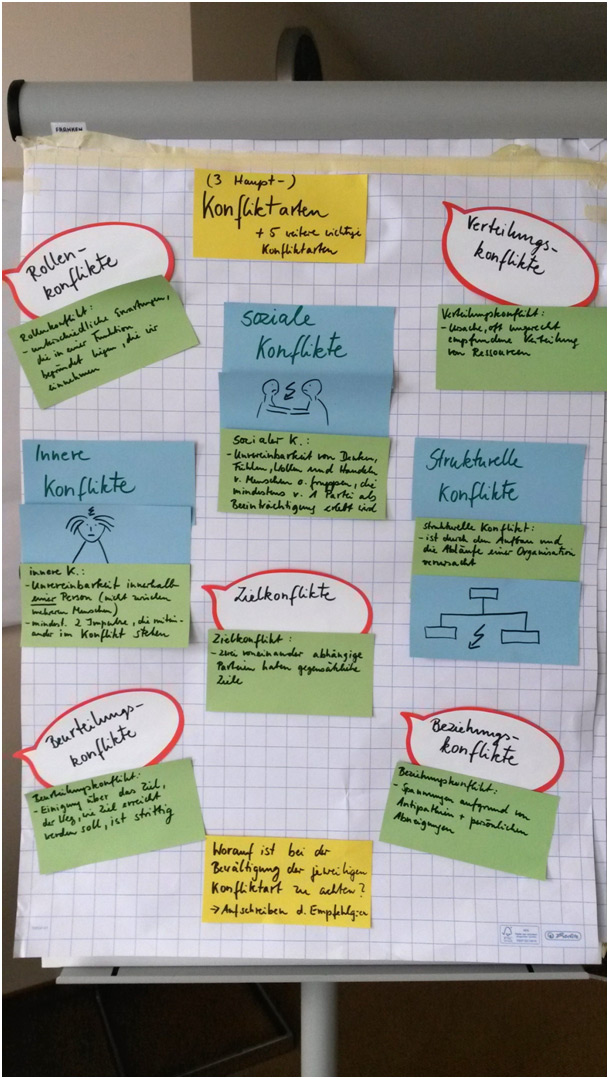 FRANKEN
(3 Haupt-)
Konfliktarten
+ 5 weitere wichtige
Konfliktarten
Rollen-
konflikte
Rollenkonflikt:
- unterschiedliche Erwartungen,
die in einer Funktion
begründet liegen, die wir
einnehmen
Verteilungs-
konflikte
Verteilungskonflikt:
- Ursache, oft ungerecht
empfundene Verteilung
von Ressourcen
Soziale
Konflikte
Sozialer K.:
- Unvereinbarkeit von Denken,
Fühlen, Wollen und Handeln
v. Menschen o. Gruppen, die
mindestens v. 1 Partei als
Beeinträchtigung erlebt wird
Innere
Konflikte
innere K.:
- Unvereinbarkeit innerhalb
einer Person (nicht zwischen
mehreren Menschen)
- mindest. 2 Impulse, die mitein-
ander im Konflikt stehen
Strukturelle
Konflikte
strukturelle Konflikt:
- ist durch den Aufbau und
die Abläufe einer Organisation
verursacht
Zielkonflikte
Zielkonflikt:
- zwei voneinander abhängige
Parteien haben gegensätzliche
Ziele
Beurteilungs-
konflikte
Beurteilungskonflikt:
- Einigung über das Ziel,
der Weg, wie Ziel erreicht
werden soll, ist strittig
Beziehungs-
konflikte
Beziehungskonflikt:
- Spannungen aufgrund von
Antipathien + persönlichen
Abneigungen
Worauf ist bei der
Bewältigung der jeweiligen
Konfliktart zu achten?
→ Aufschreiben d. Empfehlg.en
FSC